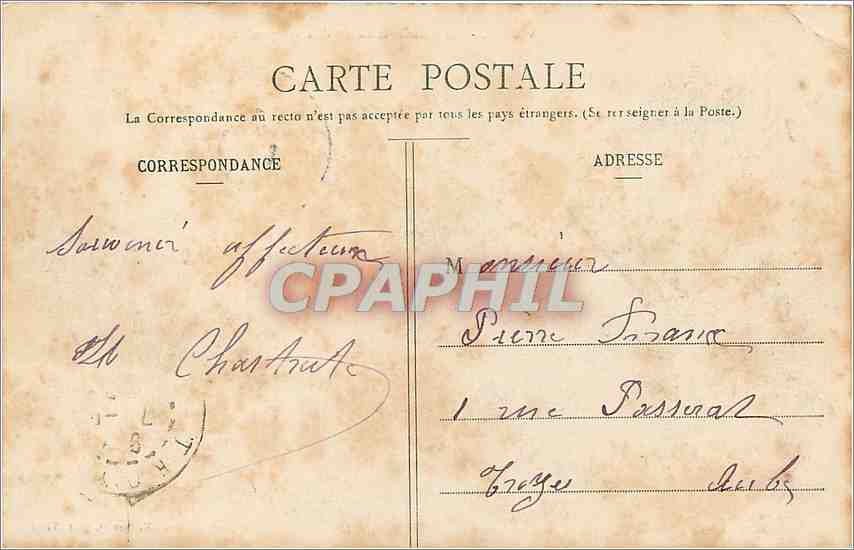 CARTE POSTALE
La Correspondance au recto n'est pas acceptée par tous les pays étrangers. (Se renseigner à la Poste.)
CORRESPONDANCE
ADRESSE
Souvenir affectueux
Monsieur
CPAPHIL
Pierre
1 rue Passerat
Troyes Aube